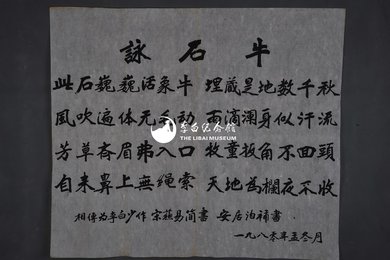 詠石牛
此石巍巍活象牛 埋藏是地数千秋
風吹遍体无毛动 雨滴澜身似汗流
芳草斋眉弗入口 牧童扳角不回頭
自来鼻上無绳索 天地為欄夜不收
相傳为李白少作 宗燕易简書 安居泊補書
一九八零年孟冬月
李白纪念馆
THE LIBAI MUSEUM